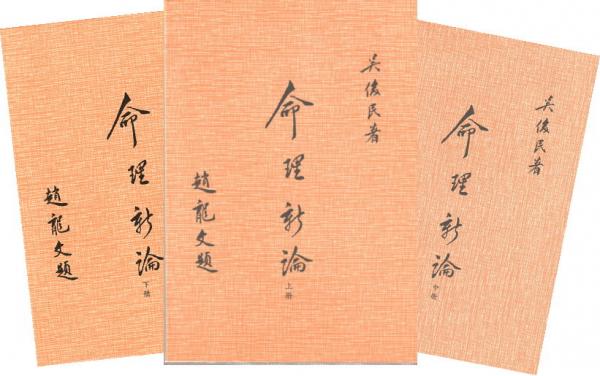 命理新論
下冊
趙龍文題
吳俊民著
命理新論
上册
趙龍文題
吳俊民著
命理新論
中冊